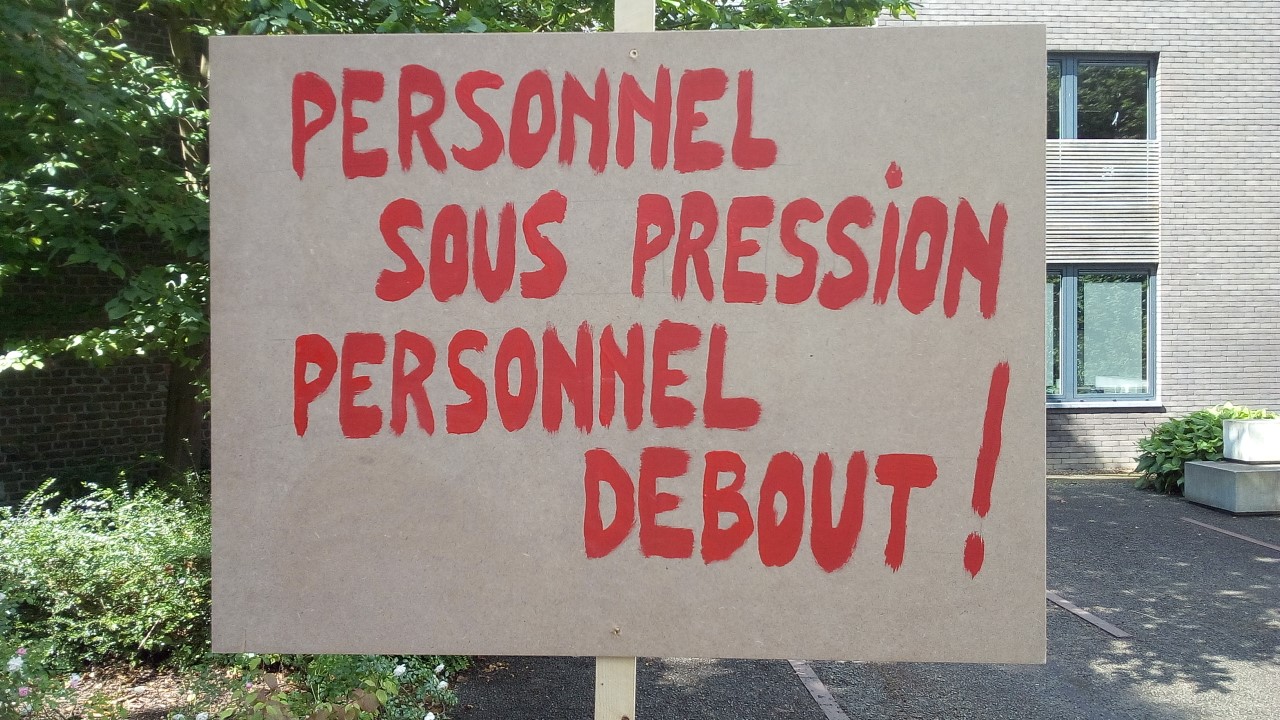 PERSONNEL
SOUS PRESSiON
PERSONNEL
DEBOUT !